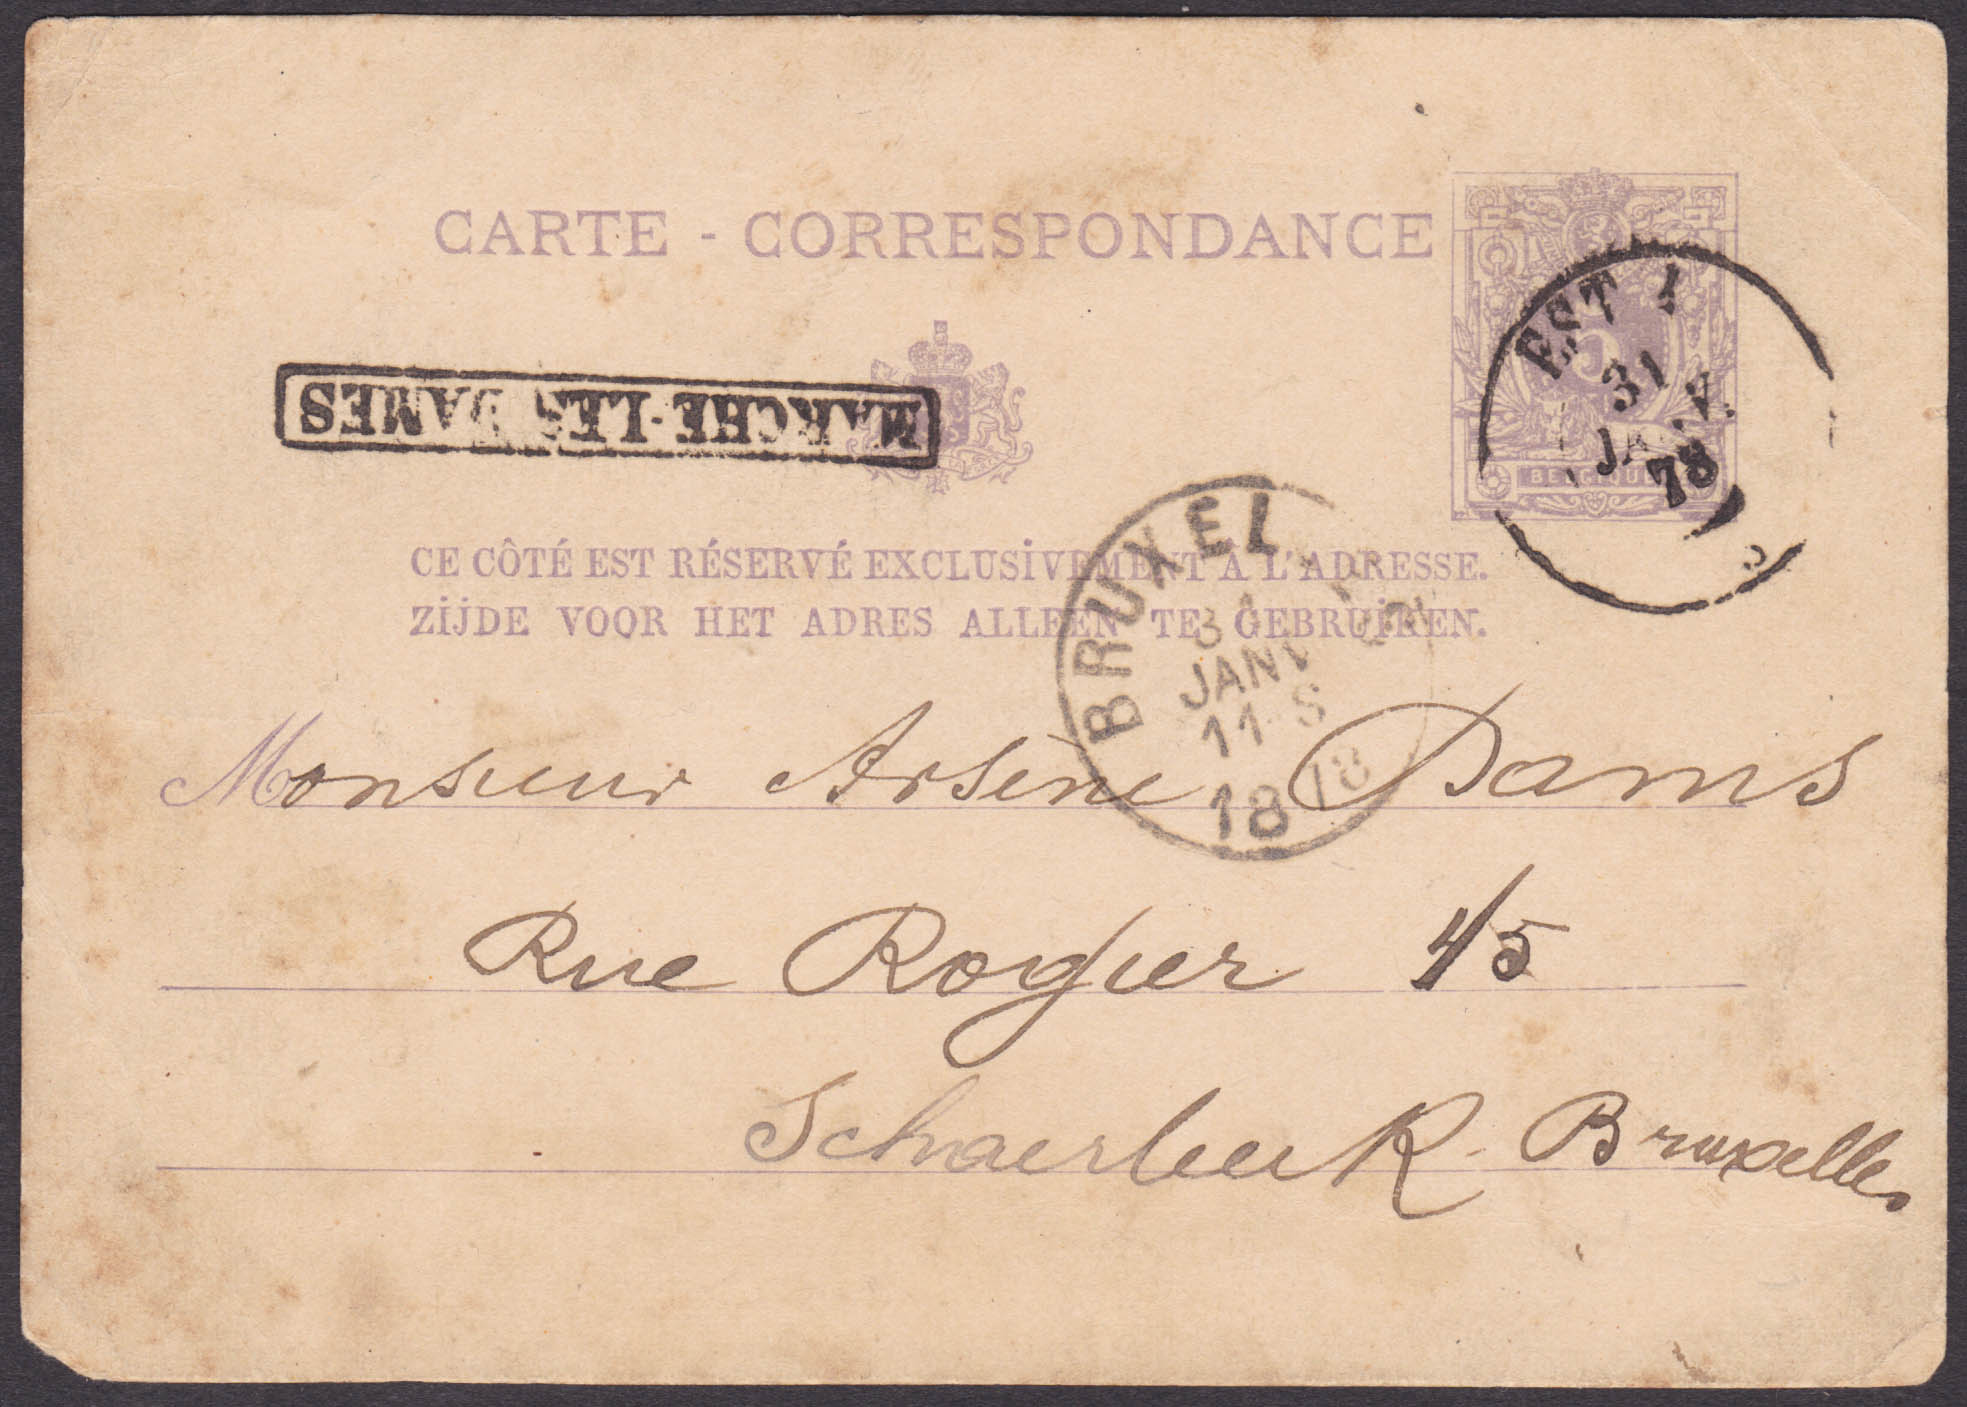 CARTE - CORRESPONDANCE
5
BELGIQUE
EST 1
31
JANV.
78
MARCHE-LES-DAMES
CE CÔTÉ EST RÉSERVÉ EXCLUSIVEMENT À L'ADRESSE.
ZIJDE VOOR HET ADRES ALLEEN TE GEBRUIKEN.
BRUXEL
31
JANV
11-S
1878
Monsieur Arsène Dams
Rue Rogier 45
Schaerbeek-Bruxelles